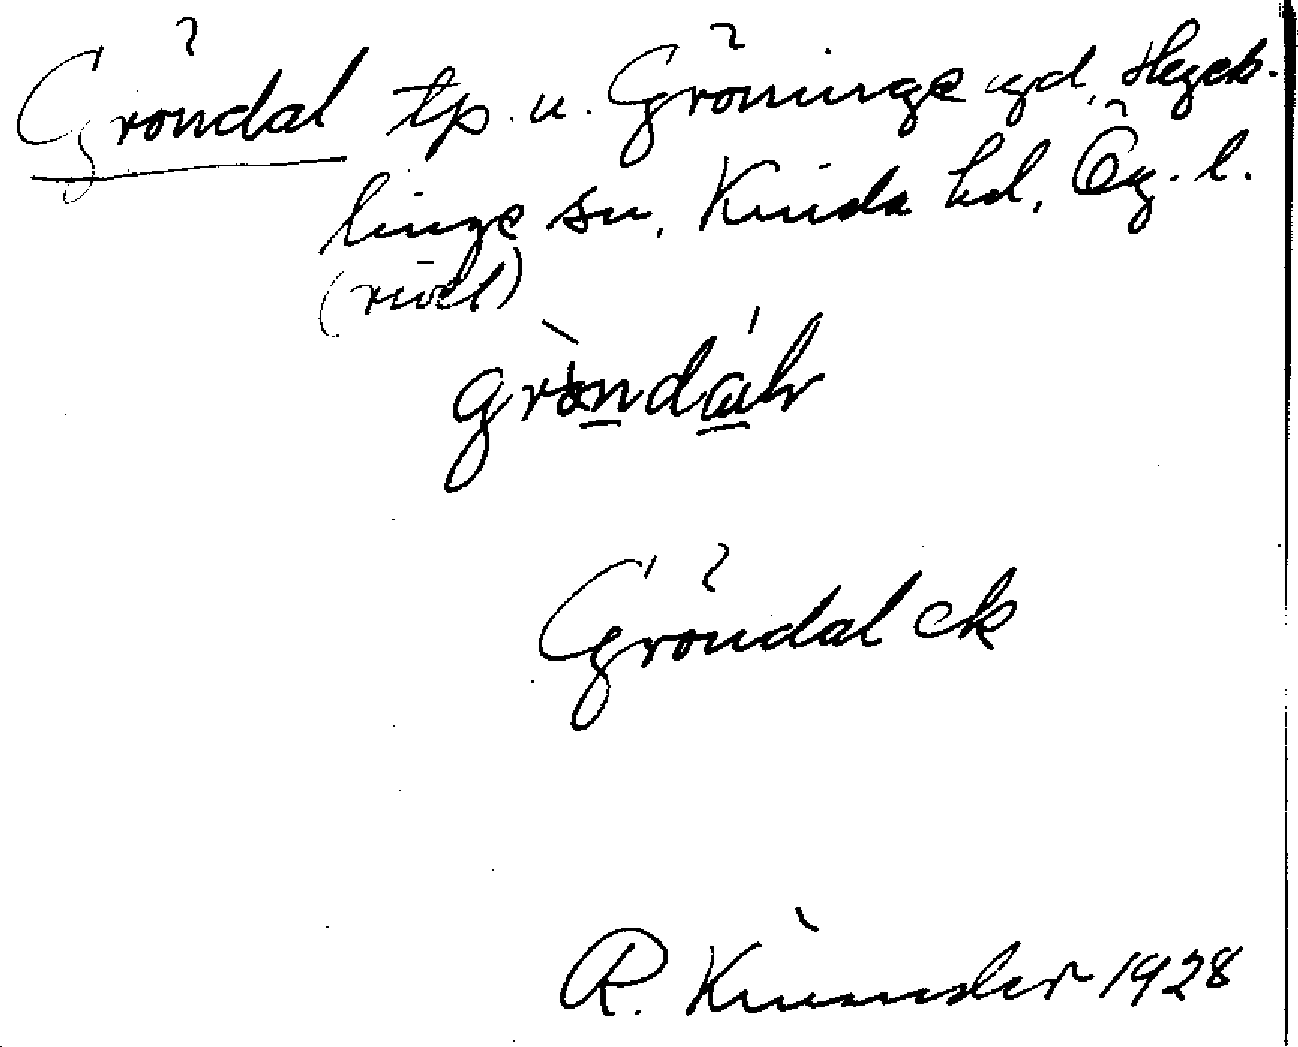 Gröndal tp. u. Gröninge egd, Hägeb-
linge sn, Kinda hd, Ög. l.
(riven)
gröndal
Gröndal ek
R. 1928